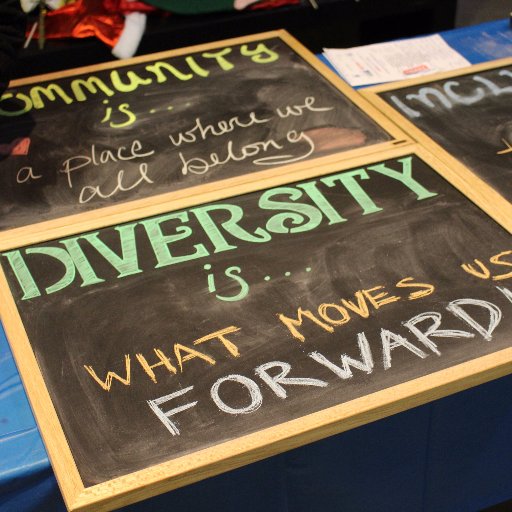 OMMUNITY
is...
a place where we
all belong
INCL
DIVERSITY
is...
WHAT MOVES US
FORWARD!